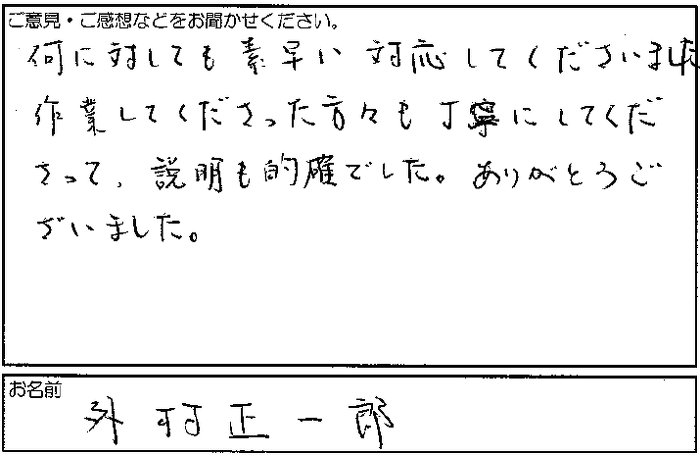 ご意見・ご感想などをお聞かせください。
何に対しても素早い対応してくださいました
作業してくださった方々も丁寧にしてくだ
さって、説明も的確でした。ありがとうご
ざいました。
お名前
外村正一郎